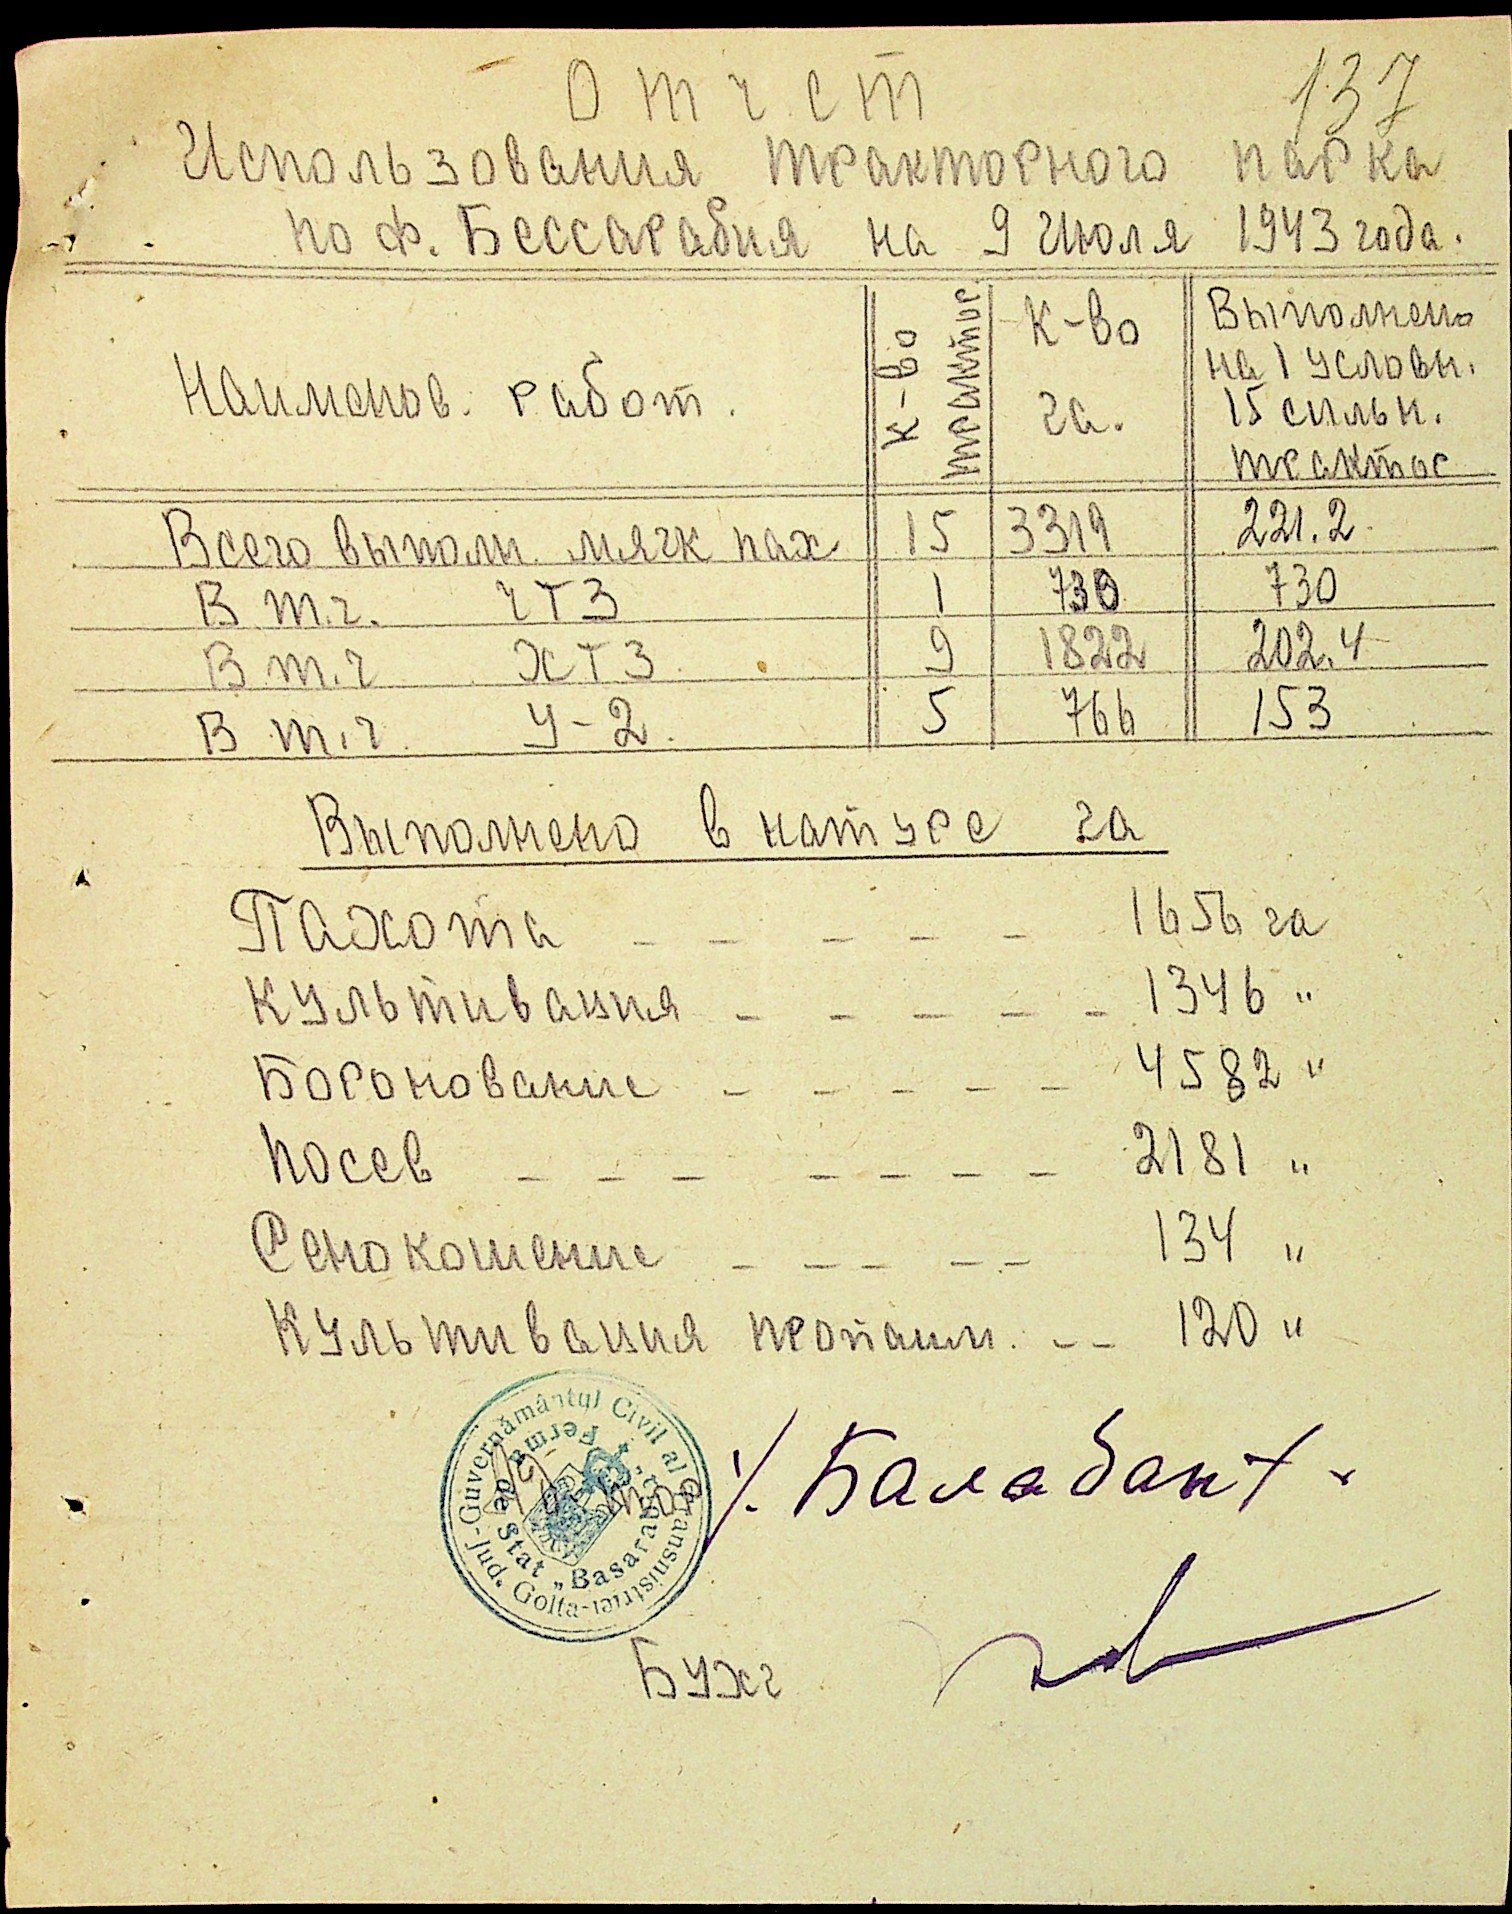 137
Отчет
Использования тракторного парка
по ф. Бессарабия на 9 Июля 1943 года.
Наименов. работ. К-во трактор. К-во га. Выполнено на 1 условн. 15 сильн. трактор
Всего выполн. мягк пах 15 3319 221.2
В т.ч. ЧТЗ 1 730 730
В т.ч ХТЗ 9 1822 202.4
В т.ч У-2. 5 766 153
Выполнено в натуре га
Пахота _ _ _ _ _ 1656 га
Культивация _ _ _ _ _ 1346 "
Боронование _ _ _ _ _ 4582 "
Посев _ _ _ _ _ _ _ 2181 "
Сенокошение _ _ _ _ _ 134 "
Культивация пропашн. _ _ 120 "
Guvernământul Civil al Transnistriei-Jud. Golta-
Ferma de Stat „Basarabia"
Балабан
Бухг